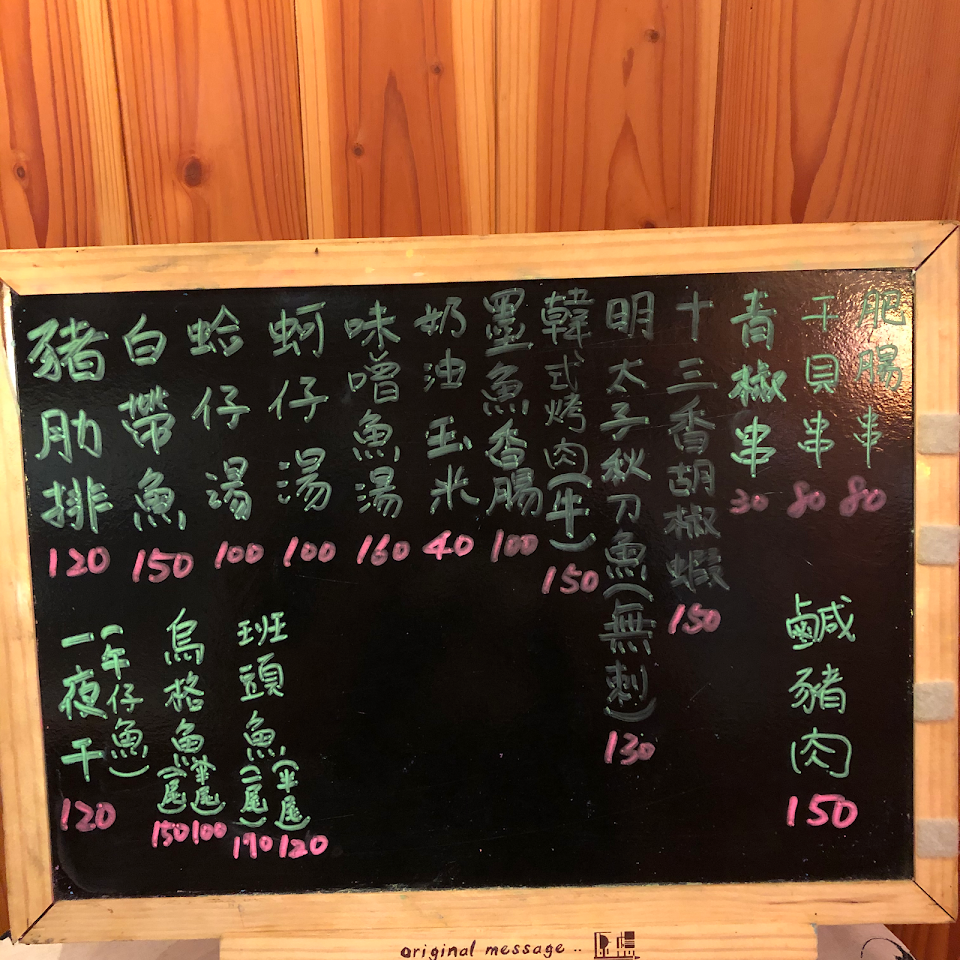 肥腸串 80
干貝串 80
青椒串 30
十三香胡椒蝦 150
明太子秋刀魚(無刺) 130
韓式烤肉(牛) 150
墨魚香腸 100
奶油玉米 40
味噌魚湯 160
蚵仔湯 100
蛤仔湯 100
白帶魚 150
豬肋排 120
鹹豬肉 150
班頭魚(半尾) 120
(一尾) 170
烏格魚(半尾) 100
(一尾) 150
一夜干(午仔魚) 120
original message..